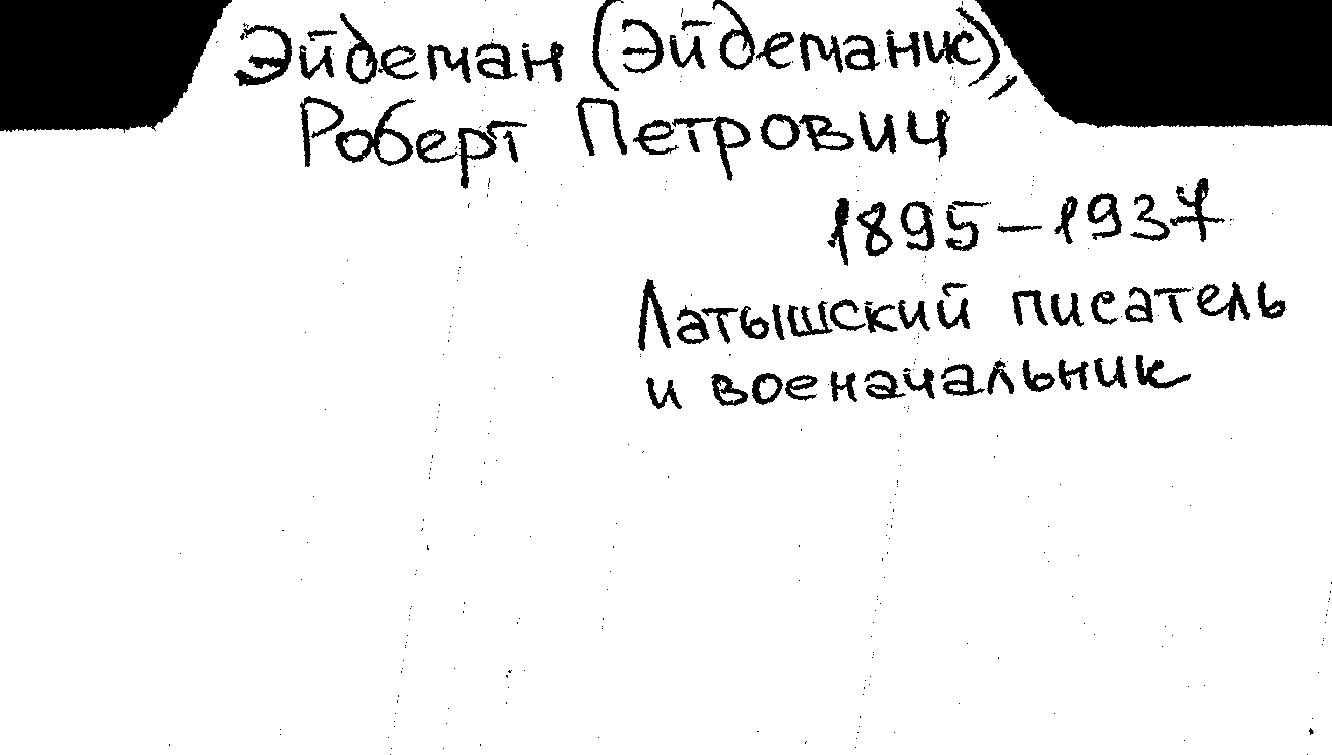 Эйдеман (Эйдеманис),
Роберт Петрович
1895–1937
Латышский писатель
и военачальник